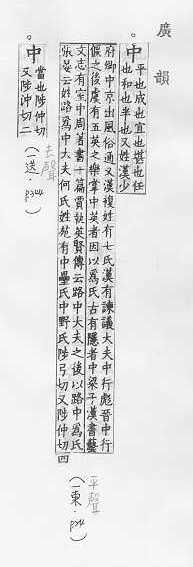 廣韻
。中 平也成也宜也堪也任
也和也半也又姓漢少
府卿中京出風俗通又漢複姓有七氏漢有諫議大夫中行彪晉中行
偃之後虞有五英之樂掌中英者因以爲氏古有隱者中梁子漢書藝
文志有室中周著書十篇賈執英賢傳云路中大夫之後以路中爲氏
張晏云姓路爲中大夫何氏姓苑有中壘氏中野氏陟弓切又陟仲切四
平聲
(一東．p24)
。中 當也陟仲切
又陟沖切二
去聲
(一送．p344)